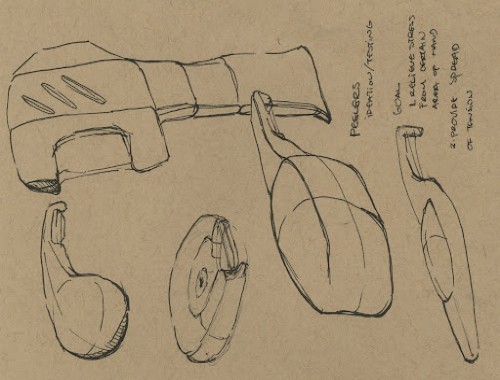 PEELERS
IDEATION/TESTING
GOAL
1. RELIEVE STRESS
FROM CERTAIN
AREA OF HAND
2. PROVIDE SPREAD
OF TENSION